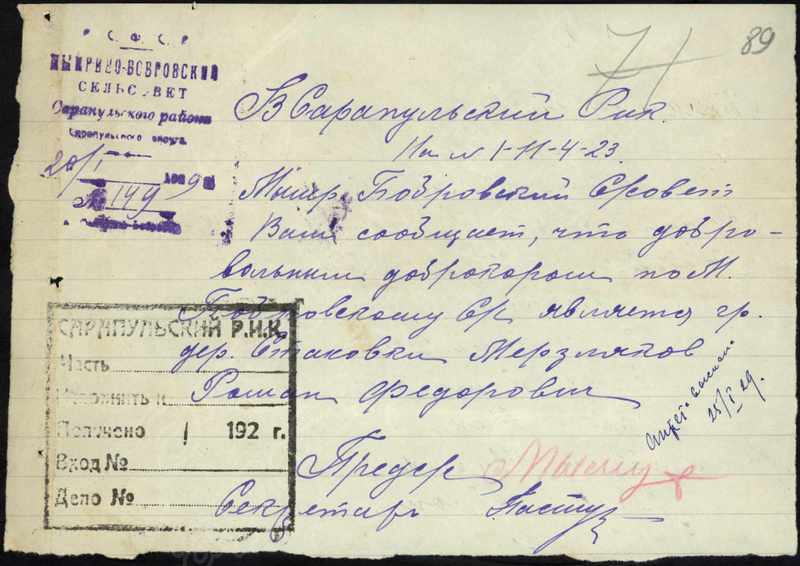 Р. С. Ф. С. Р
МЫЖРИНО-БОБРОВСКИЙ
СЕЛЬСОВЕТ
Сарапульского района
Сарапульского округа
20/I 1929
№ 149
71
89
В Сарапульский Рик.
На № 1-11-4-23.
Бобровский С/совет
Вам сообщает, что добро-
вольным доброкором по М.
Бобровскому С/с является гр.
дер. Стаковки Мерзляков
Роман Федорович
25/I 29.
Предс
Секретарь
САРАПУЛЬСКИЙ Р.И.К.
Часть
Исполнить к
Получено / 192 г.
Вход №
Дело №